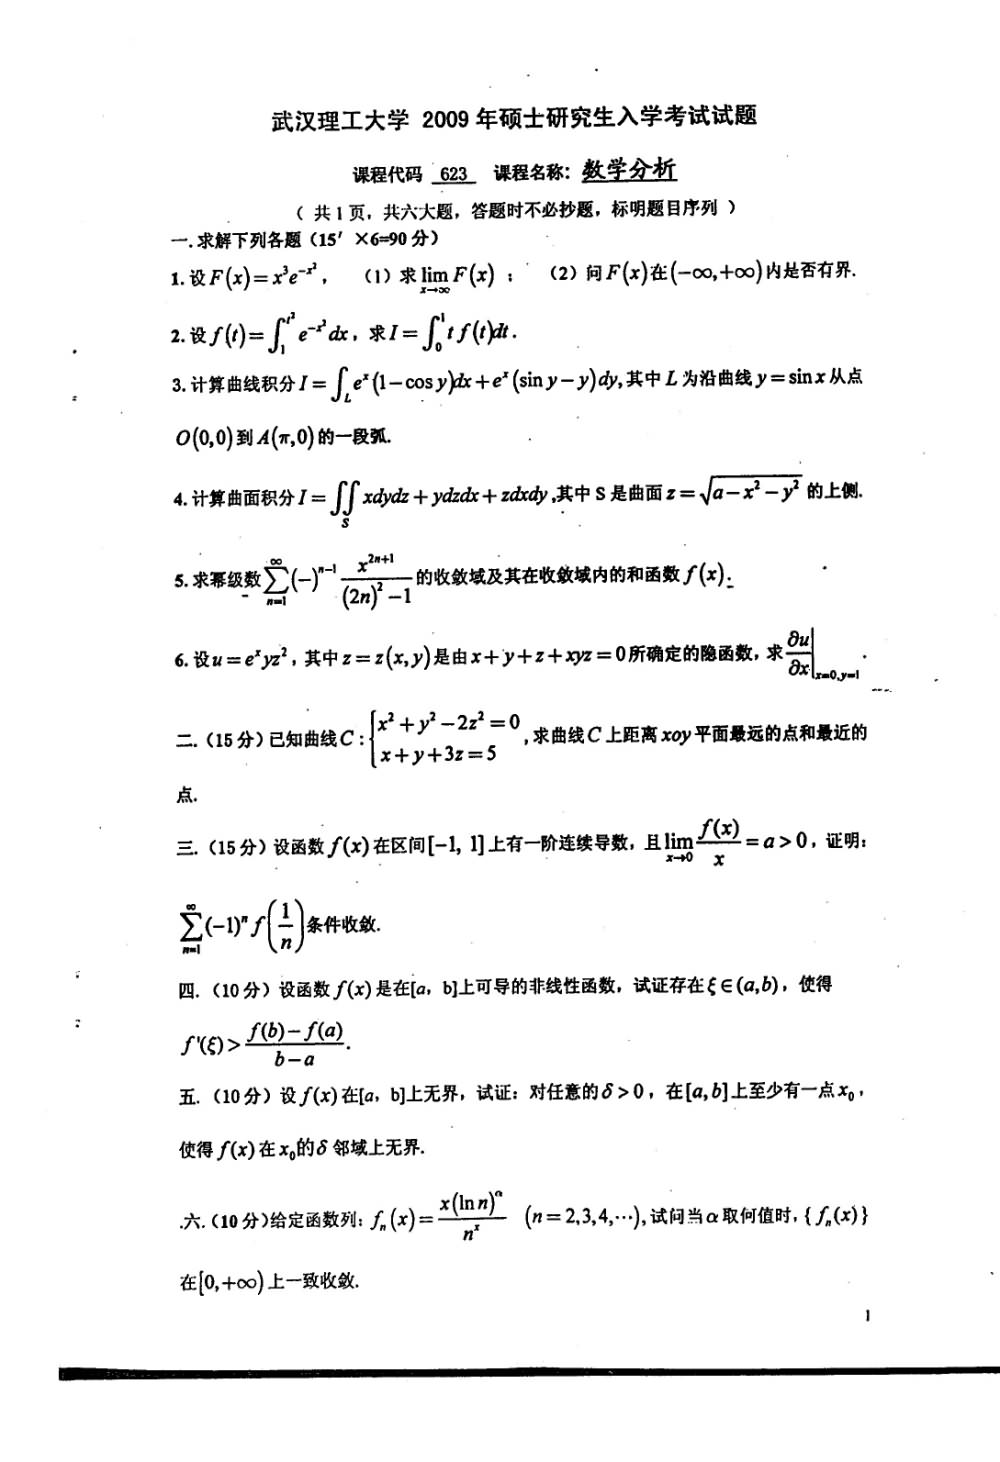 武汉理工大学 2009 年硕士研究生入学考试试题
课程代码 623 课程名称: 数学分析
( 共 1 页，共六大题，答题时不必抄题，标明题目序列 )
一. 求解下列各题（15′ ×6=90 分）
1. 设 F(x)=x³e^{-x²}， (1) 求 lim_{x→∞} F(x) ； (2) 问 F(x) 在 (−∞,+∞) 内是否有界.
2. 设 f(t)=∫_1^{t²} e^{-x²}dx，求 I=∫_0^1 t f(t)dt.
3. 计算曲线积分 I=∫_L e^x(1−cos y)dx+e^x(sin y−y)dy,其中 L 为沿曲线 y=sin x 从点
O(0,0) 到 A(π,0) 的一段弧.
4. 计算曲面积分 I=∬_S xdydz+ydzdx+zdxdy,其中 S 是曲面 z=√(a−x²−y²) 的上侧.
5. 求幂级数 ∑_{n=1}^∞ (−)^{n−1} x^{2n+1}/((2n)²−1) 的收敛域及其在收敛域内的和函数 f(x).
6. 设 u=e^x yz²，其中 z=z(x,y) 是由 x+y+z+xyz=0 所确定的隐函数，求 ∂u/∂x|_{x=0,y=1} .
二.（15 分）已知曲线 C：{x²+y²−2z²=0, x+y+3z=5 ,求曲线 C 上距离 xoy 平面最远的点和最近的
点.
三.（15 分）设函数 f(x) 在区间 [−1, 1] 上有一阶连续导数，且 lim_{x→0} f(x)/x =a>0，证明：
∑_{n=1}^∞ (−1)^n f(1/n) 条件收敛.
四.（10 分）设函数 f(x) 是在[a，b]上可导的非线性函数，试证存在 ξ∈(a,b)，使得
f'(ξ)> (f(b)−f(a))/(b−a).
五.（10 分）设 f(x) 在[a，b]上无界，试证：对任意的 δ>0，在 [a,b] 上至少有一点 x₀，
使得 f(x) 在 x₀的 δ 邻域上无界.
六.（10 分）给定函数列: f_n(x)= x(ln n)^α/n^x (n=2,3,4,⋯), 试问当 α 取何值时, { f_n(x)}
在 [0,+∞) 上一致收敛.
1